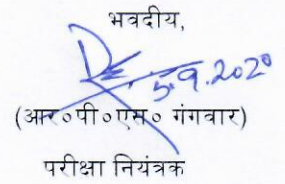 भवदीय,
5.9.2020
(आर०पी०एस० गंगवार)
परीक्षा नियंत्रक